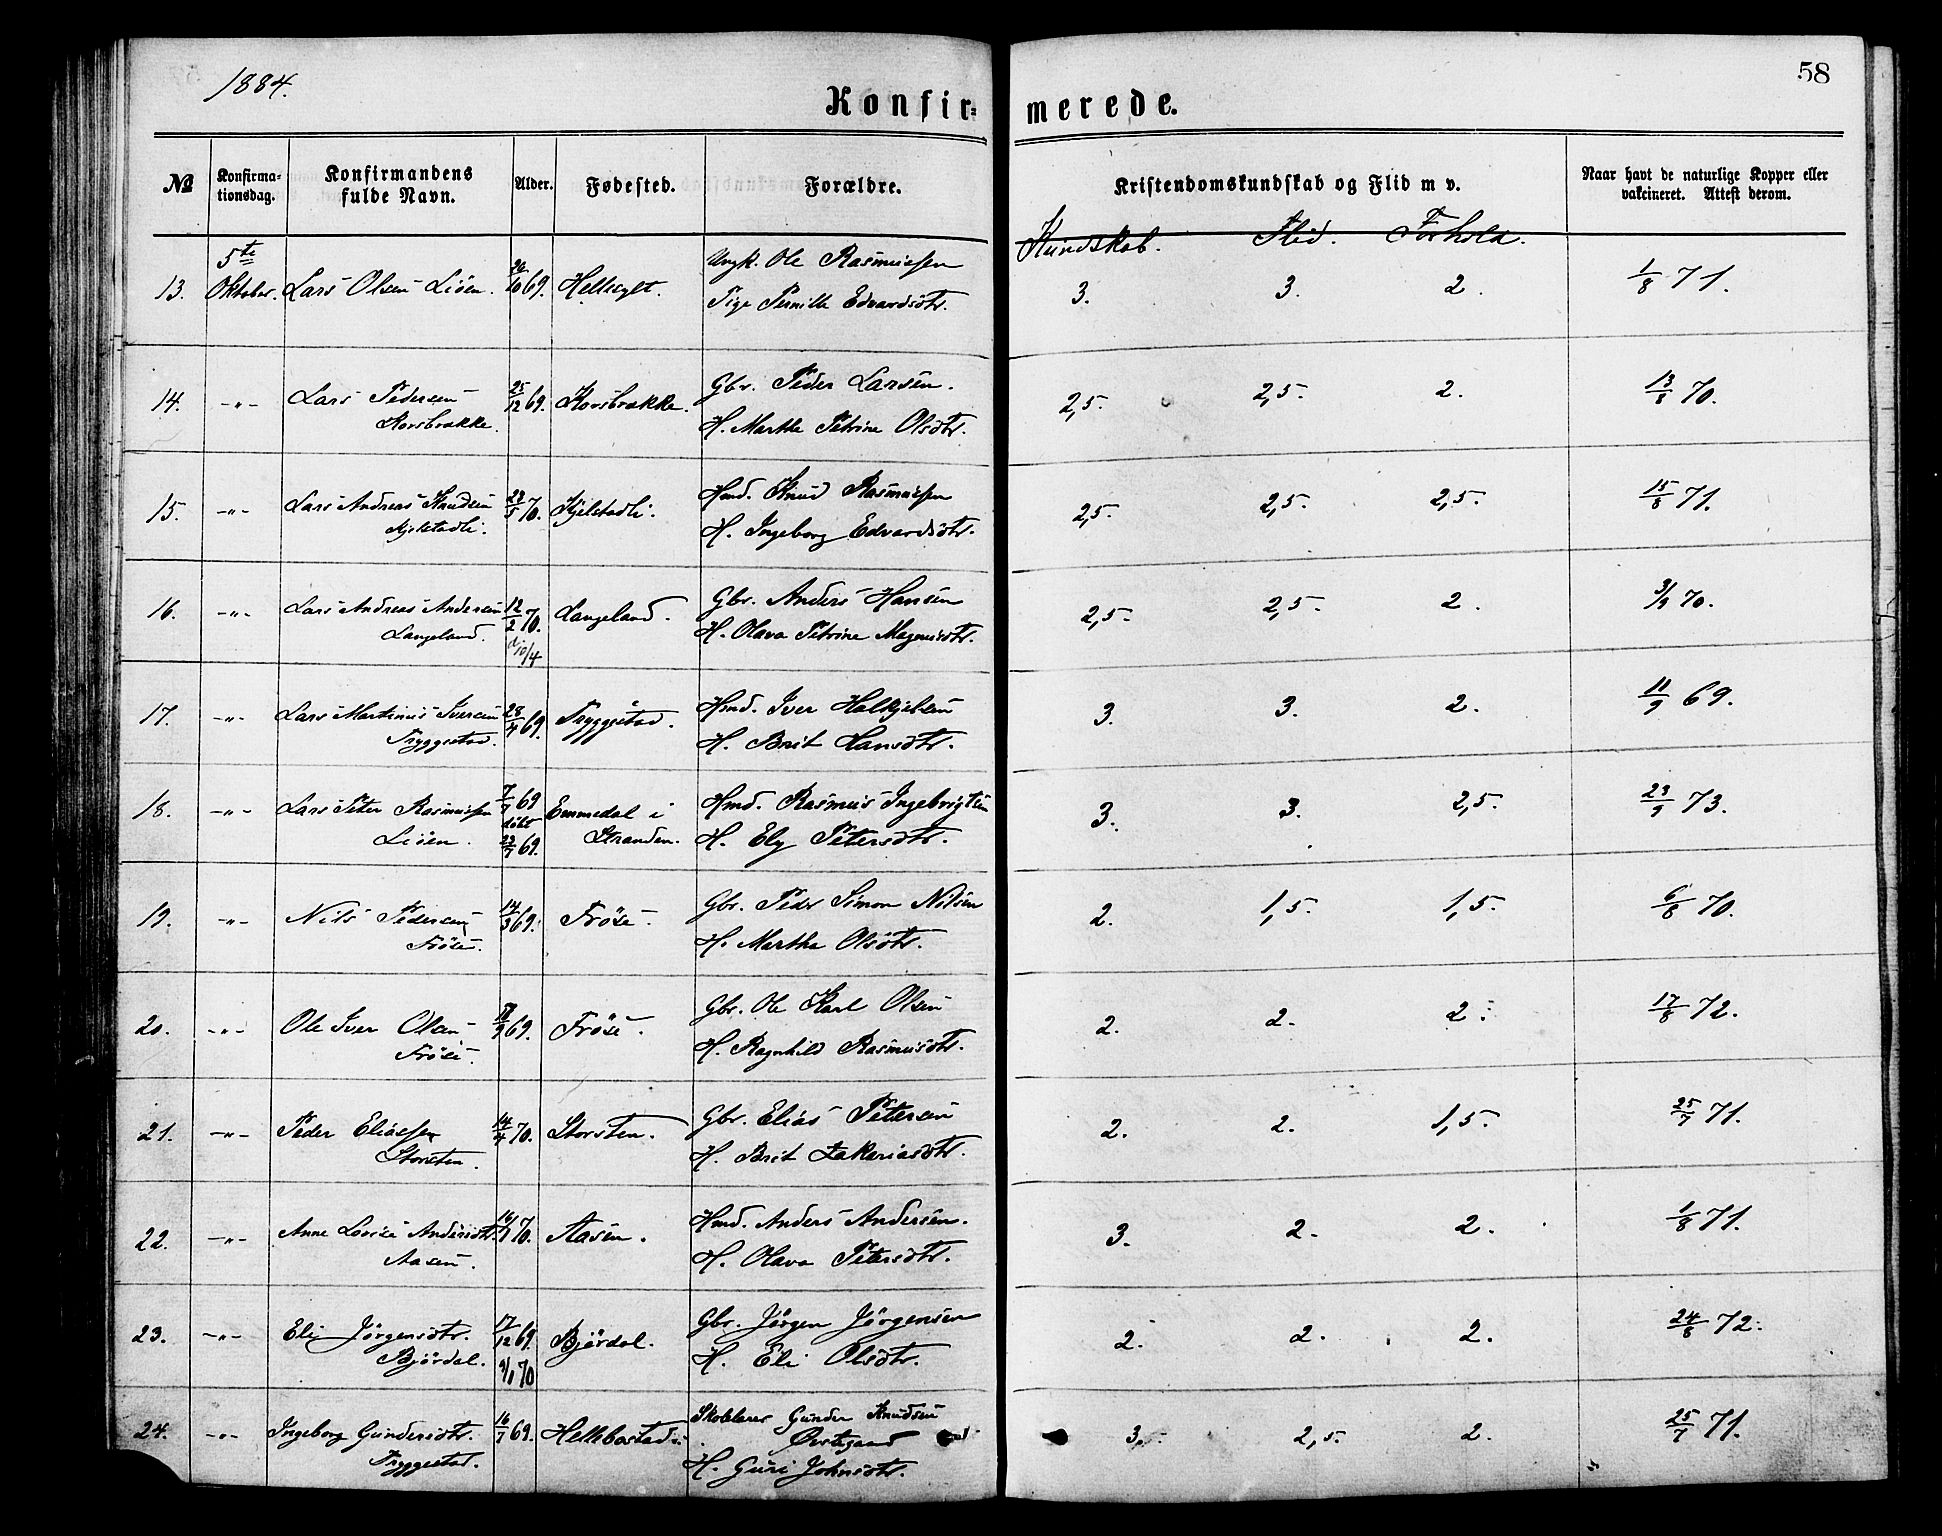 1884.
58
Konfir- merede.
№ Konfirma-tionsdag. Konfirmandens fulde Navn. Alder. Fødested. Forældre. Kristendomskundskab og Flid m v. Naar havt de naturlige Kopper eller vakcineret. Attest derom.
Kundskab. Flid. Forhold.
5te Ungk. Ole Rasmussen
13. Oktober. Lars Olsen Liöen. 10 69. Hellesylt. 3. 3. 2. 1/8 71.
Pige Pernille Edvardsdtr.
14. -"- Lars Pedersen 25/12 69. Korsbrække. Gbr. Peder Larsen. 2,5. 2,5. 2. 13/8 70.
Korsbrække. H. Marthe Petrine Olsdtr.
15. -"- Lars Andreas Knudsen 5 70. Kjelstadli. Hmd. Knud Rasmussen 2,5. 2,5. 2,5. 15/8 71.
Kjelstadli. H. Ingeborg Edvardsdtr.
16. -"- Lars Andreas Andersen 12/2 70. Langeland. Gbr. Anders Hansen 2,5. 2,5. 2. 3/9 70.
Langeland. 10/4 H. Olava Petrine Magnusdtr.
17. -"- Lars Martinus Iversen 28/4 69. Tryggestad. Hmd. Iver 3. 3. 2. 11/9 69.
Tryggestad. H. Brit Hansdtr.
18. -"- Lars Peter Rasmussen 7/7 69 Emmedal i Hmd. Rasmus Ingebrigtsen 3. 3. 2,5. 23/9 73.
Liöen. döbt 23/7 69. Stranden. H. Ely Petersdtr.
19. -"- Nils Pedersen 14/3 69. Fröse. Gbr. Peder Simon Nilsen 2. 1,5. 1,5. 6/8 70.
Fröse. H. Martha Olsdtr.
20. -"- Ole Iver Olsen 9 69. Fröse. Gbr. Ole Karl Olsen 2. 2. 2. 17/8 72.
Fröse. H. Ragnhild Rasmusdtr.
21. -"- Peder Eliassen 14/4 70. Storsten. Gbr. Elias Petersen 2. 2. 1,5. 25/7 71.
Storsten. H. Brit Zakariasdtr.
22. -"- Anne Lovise Andersdtr. 70. Aasen. Hmd. Anders Andersen. 3. 2. 2. 1/8 71.
Aasen. H. Olava Petersdtr.
23. -"- Eli Jörgensdtr. 17/12 69. Björdal. Gbr. Jörgen Jörgensen 2. 2. 2. 24/8 72.
Björdal. 9/1 70 H. Eli Olsdtr.
24. -"- Ingeborg Gundersdtr. 16/7 69. Skolelærer Gunder Knudsen 3. 2,5. 2. 25/7 71.
Tryggestad.
H. Guri Johnsdtr.